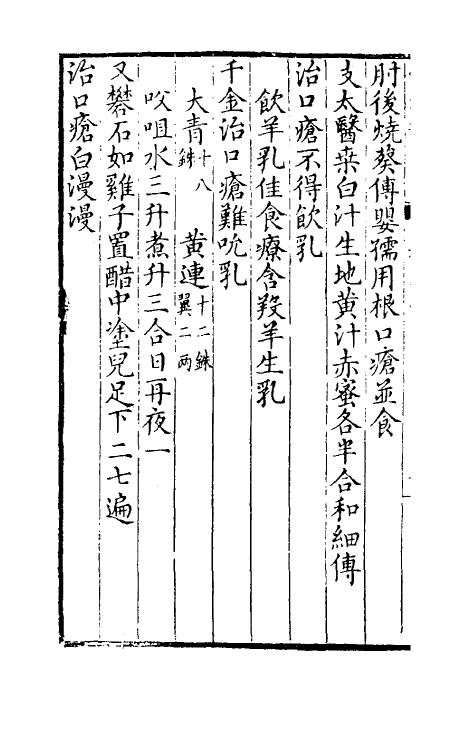 肘後燒葵傅嬰孺用根口瘡並食
支太醫桒白汁生地黄汁赤蜜各半合和細傅
治口瘡不得飲乳
飲羊乳佳食療含羖羊生乳
千金治口瘡難吮乳
大青十八銖 黄連十二銖翼二兩
㕮咀水三升煮升三合日再夜一
又礬石如雞子置醋中塗兒足下二七遍
治口瘡白漫漫